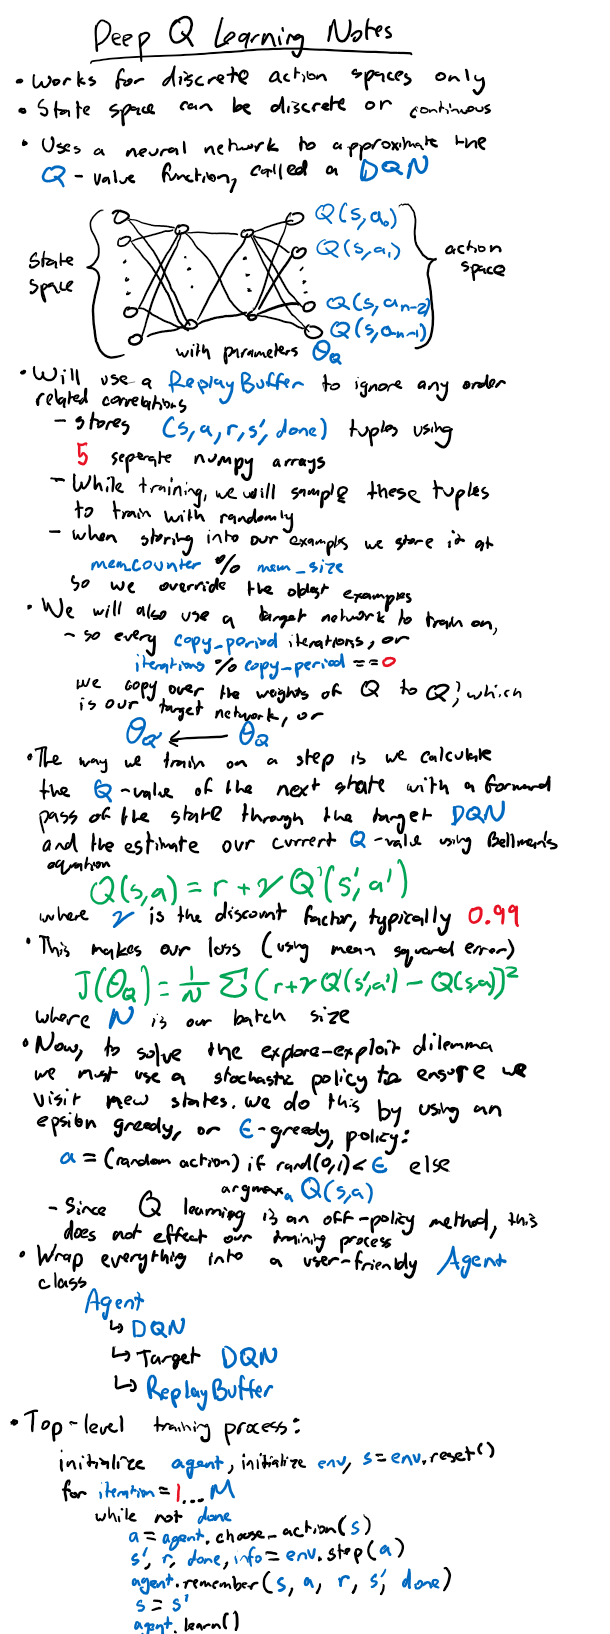 Deep Q Learning Notes
• Works for discrete action spaces only
• State space can be discrete or continuous
• Uses a neural network to approximate the
Q-value function, called a DQN
Q(s,a₀)
Q(s,a₁)
state space
action space
Q(s,aₙ₋₂)
Q(s,aₙ₋₁)
with parameters θ_Q
• Will use a ReplayBuffer to ignore any order
related correlations
- stores (s,a,r,s',done) tuples using
5 seperate numpy arrays
- While training, we will sample these tuples
to train with randomly
- when storing into our examples we store it at
mem_counter % mem_size
so we override the oldest examples
• We will also use a target network to train on,
- so every copy_period iterations, or
iterations % copy_period == 0
we copy over the weights of Q to Q', which
is our target network, or
θ_Q' ← θ_Q
• The way we train on a step is we calculate
the Q-value of the next state with a forward
pass of the state through the target DQN
and the estimate our current Q-value using Bellman's
equation
Q(s,a) = r + γ Q'(s',a')
where γ is the discount factor, typically 0.99
• This makes our loss (using mean squared error)
J(θ_Q) = 1/N Σ (r+γQ'(s',a') - Q(s,a))²
where N is our batch size
• Now, to solve the explore-exploit dilemma
we must use a stochastic policy to ensure we
visit new states. We do this by using an
epsilon greedy, or ε-greedy, policy:
a = (random action) if rand(0,1) < ε else
argmaxₐ Q(s,a)
- Since Q learning is an off-policy method, this
does not effect our training process
• Wrap everything into a user-friendly Agent
class
Agent
↳ DQN
↳ Target DQN
↳ ReplayBuffer
• Top-level training process:
initialize agent, initialize env, s = env.reset()
for iteration = 1...M
while not done
a = agent.choose_action(s)
s', r, done, info = env.step(a)
agent.remember(s, a, r, s', done)
s = s'
agent.learn()